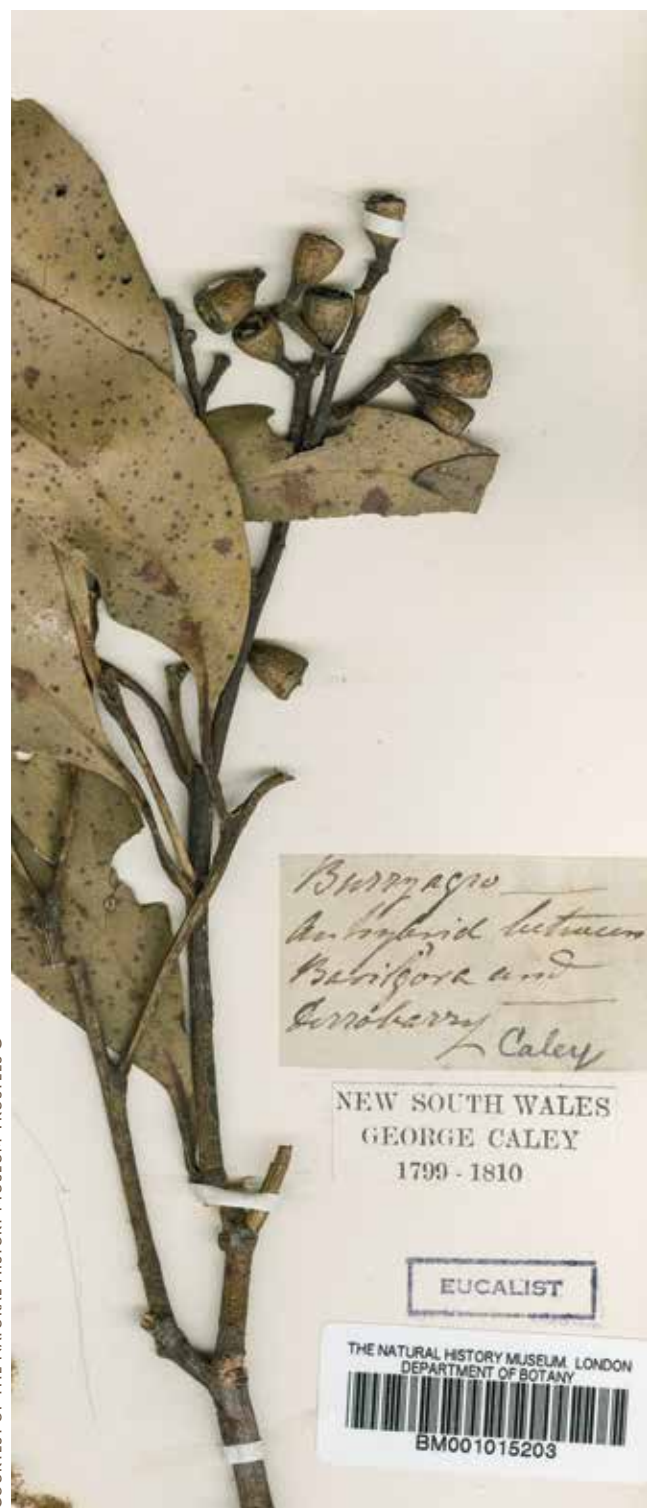 Burryagro
An hybrid between
Barilgora and
Derrobarry
Caley
NEW SOUTH WALES
GEORGE CALEY
1799 - 1810
EUCALIST
THE NATURAL HISTORY MUSEUM. LONDON
DEPARTMENT OF BOTANY
BM001015203